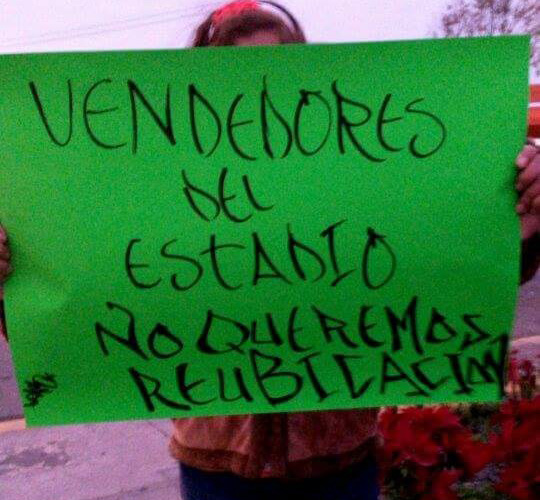 VENDEDORES
DEL
ESTADIO
NO QUEREMOS
REUBICACION